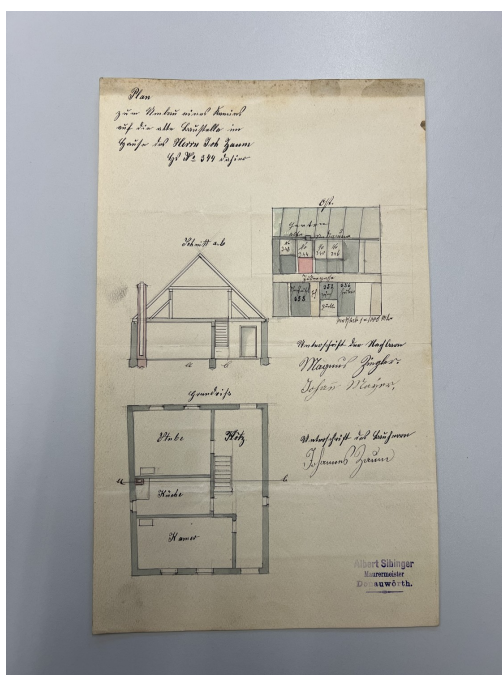 Plan
zum Umbau eines Kamins
auf die alte Baustelle im
Hause des Herrn Joh Zaum
Hs № 344 dahier
Ost.
Schnitt a.b
Garten
344
Unterschrift der Nachbarn
Magnus Ziegler.
Johan Mayer.
a b
Grundriß
Stube
Flötz
Unterschrift des Bauherrn
Johannes Zaum
a b
Küche
Kamer
Albert Sibinger
Maurermeister
Donauwörth.